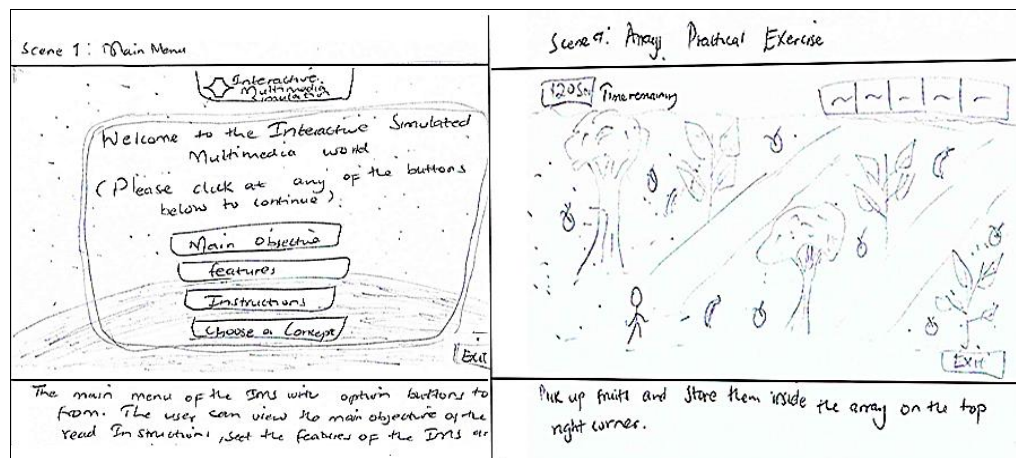 Scene 1: Main Menu
Interactive
Multimedia
Simulation
Welcome to the Interactive Simulated
Multimedia world
(Please click at any of the buttons
below to continue)
Main Objective
features
Instructions
Choose a Concept
Exit
The main menu of the IMS with option buttons to
from. The user can view the main objective of the
read Instructions, see the features of the IMS or
Scene 9: Arrays Practical Exercise
Time remaining
EXIT
Pick up fruits and store them inside the array on the top
right corner.